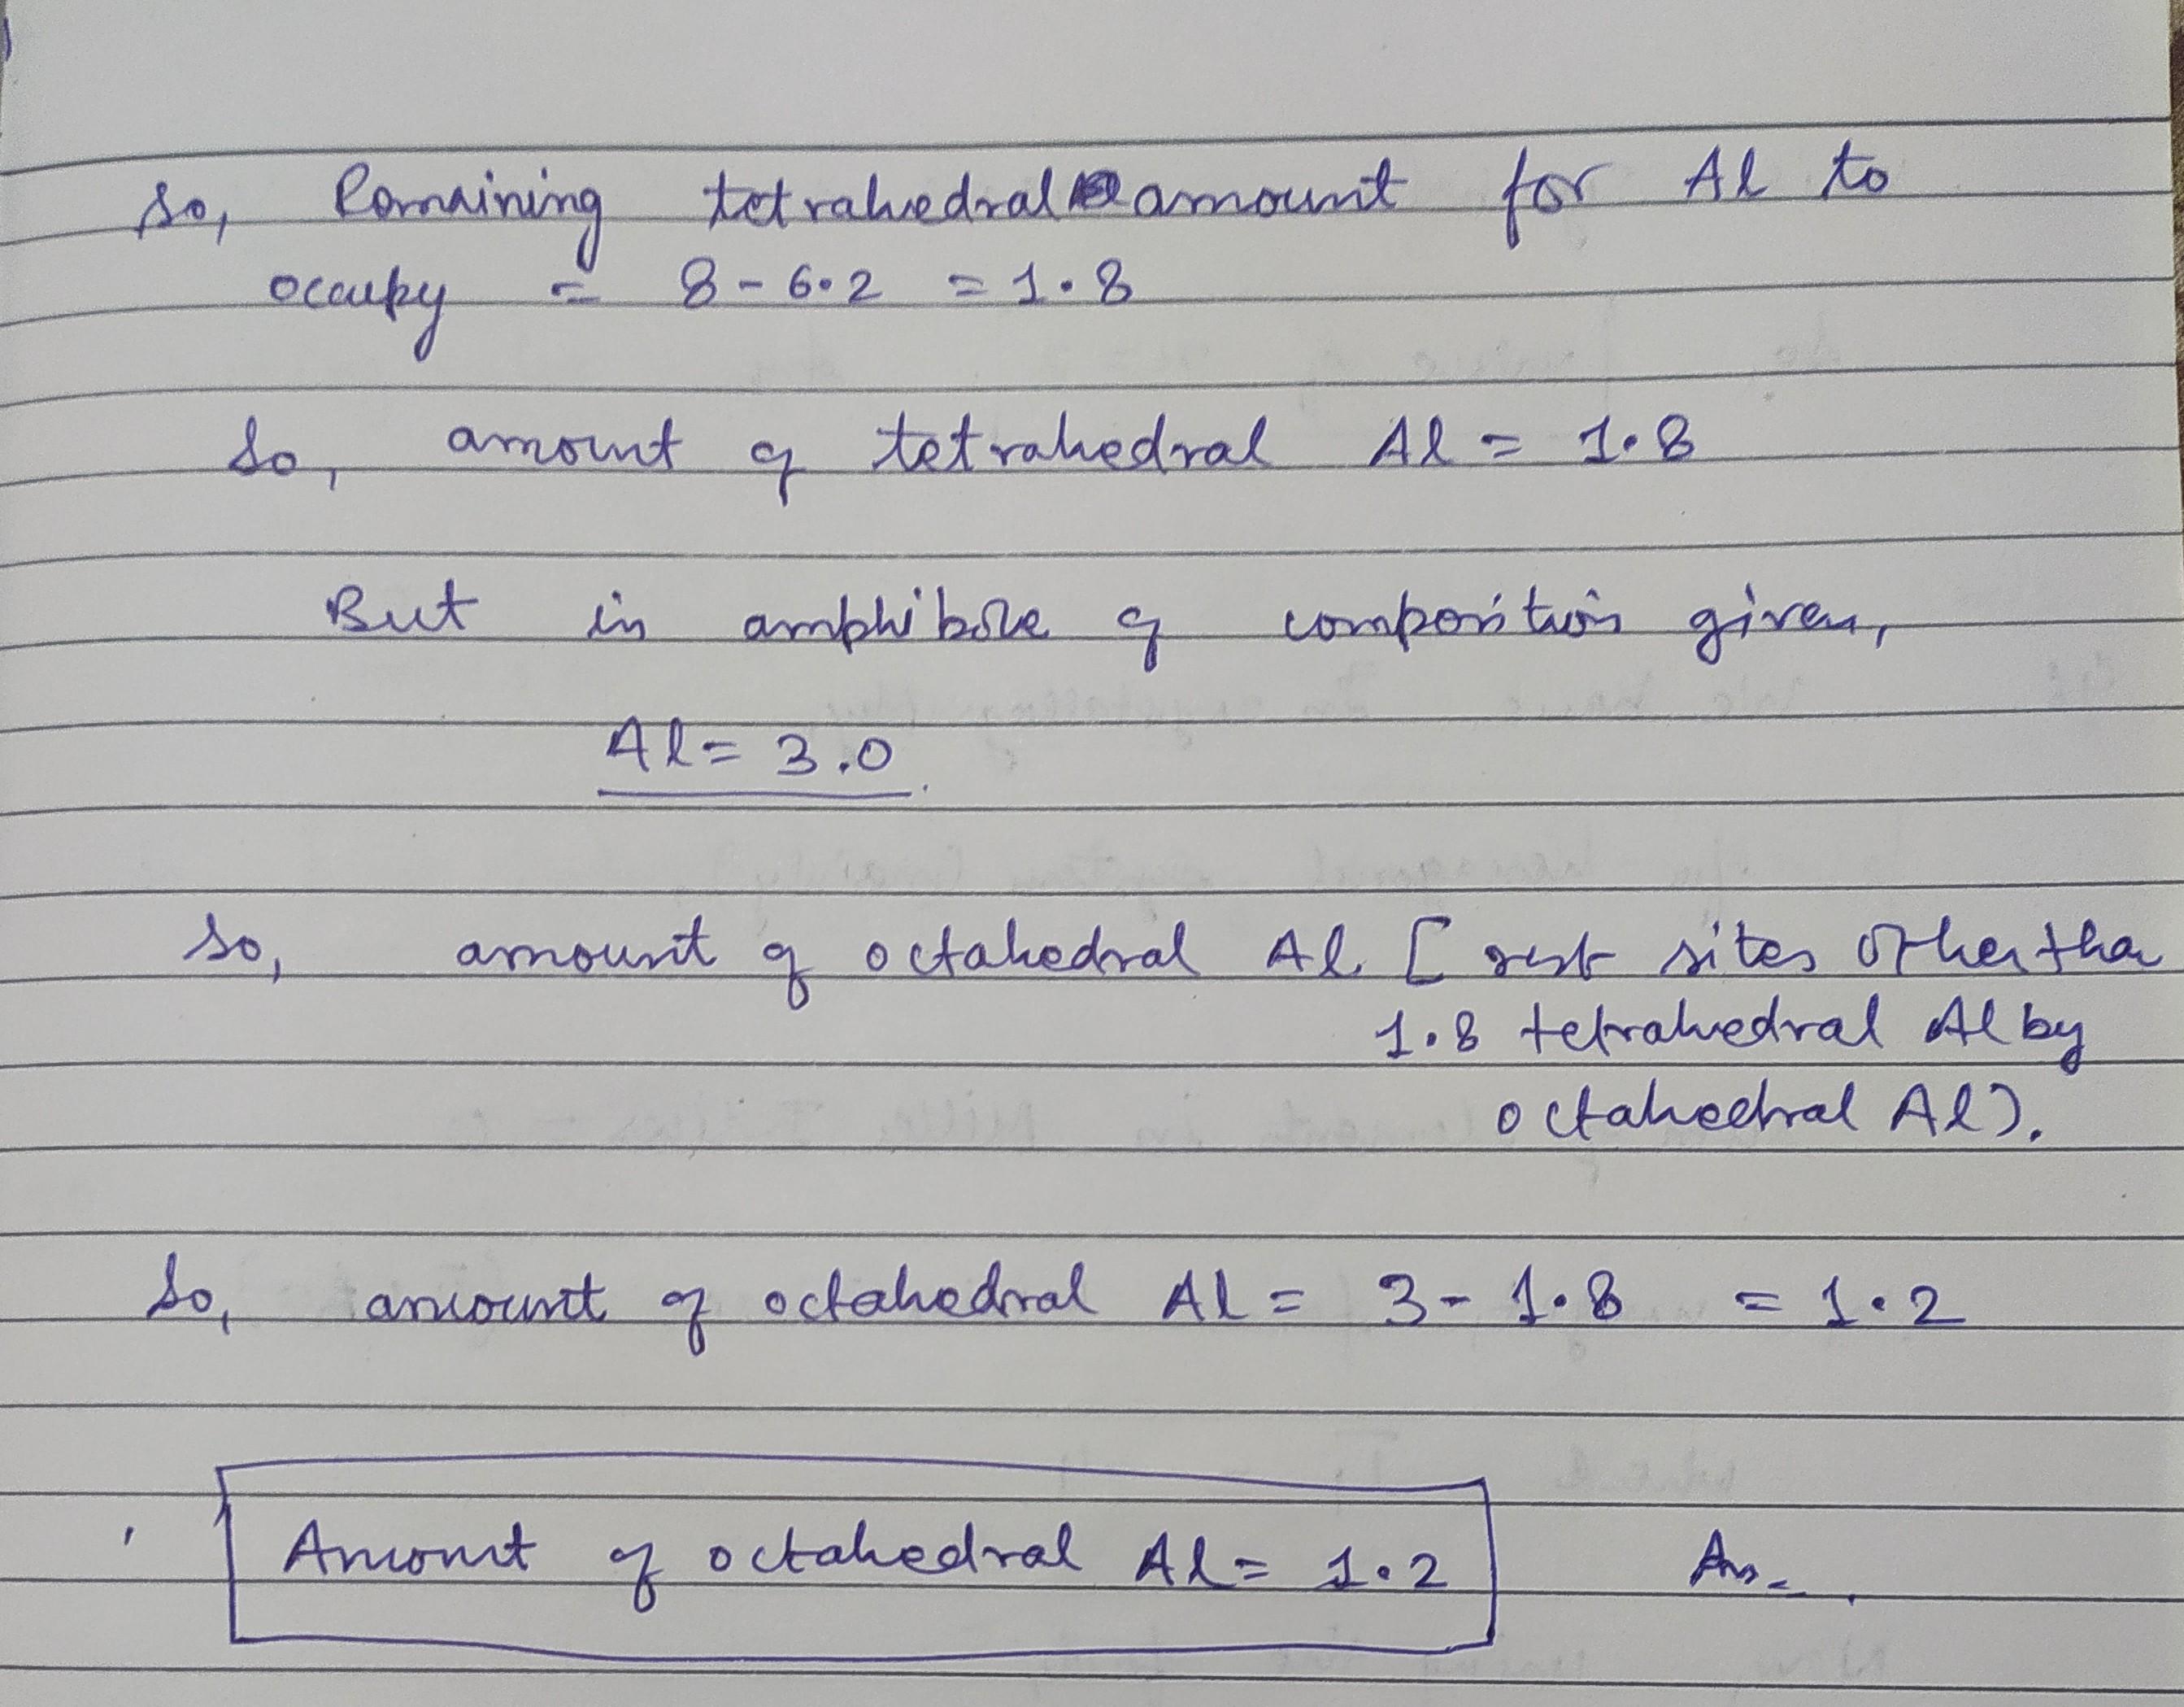 So, Remaining tetrahedral amount for Al to
occupy = 8 - 6.2 = 1.8
So, amount of tetrahedral Al = 1.8
But in amphibole of composition given,
Al = 3.0
So, amount of octahedral Al [ rest sites other than
1.8 tetrahedral Al by
octahedral Al).
So, amount of octahedral Al = 3 - 1.8 = 1.2
Amount of octahedral Al = 1.2 Ans.